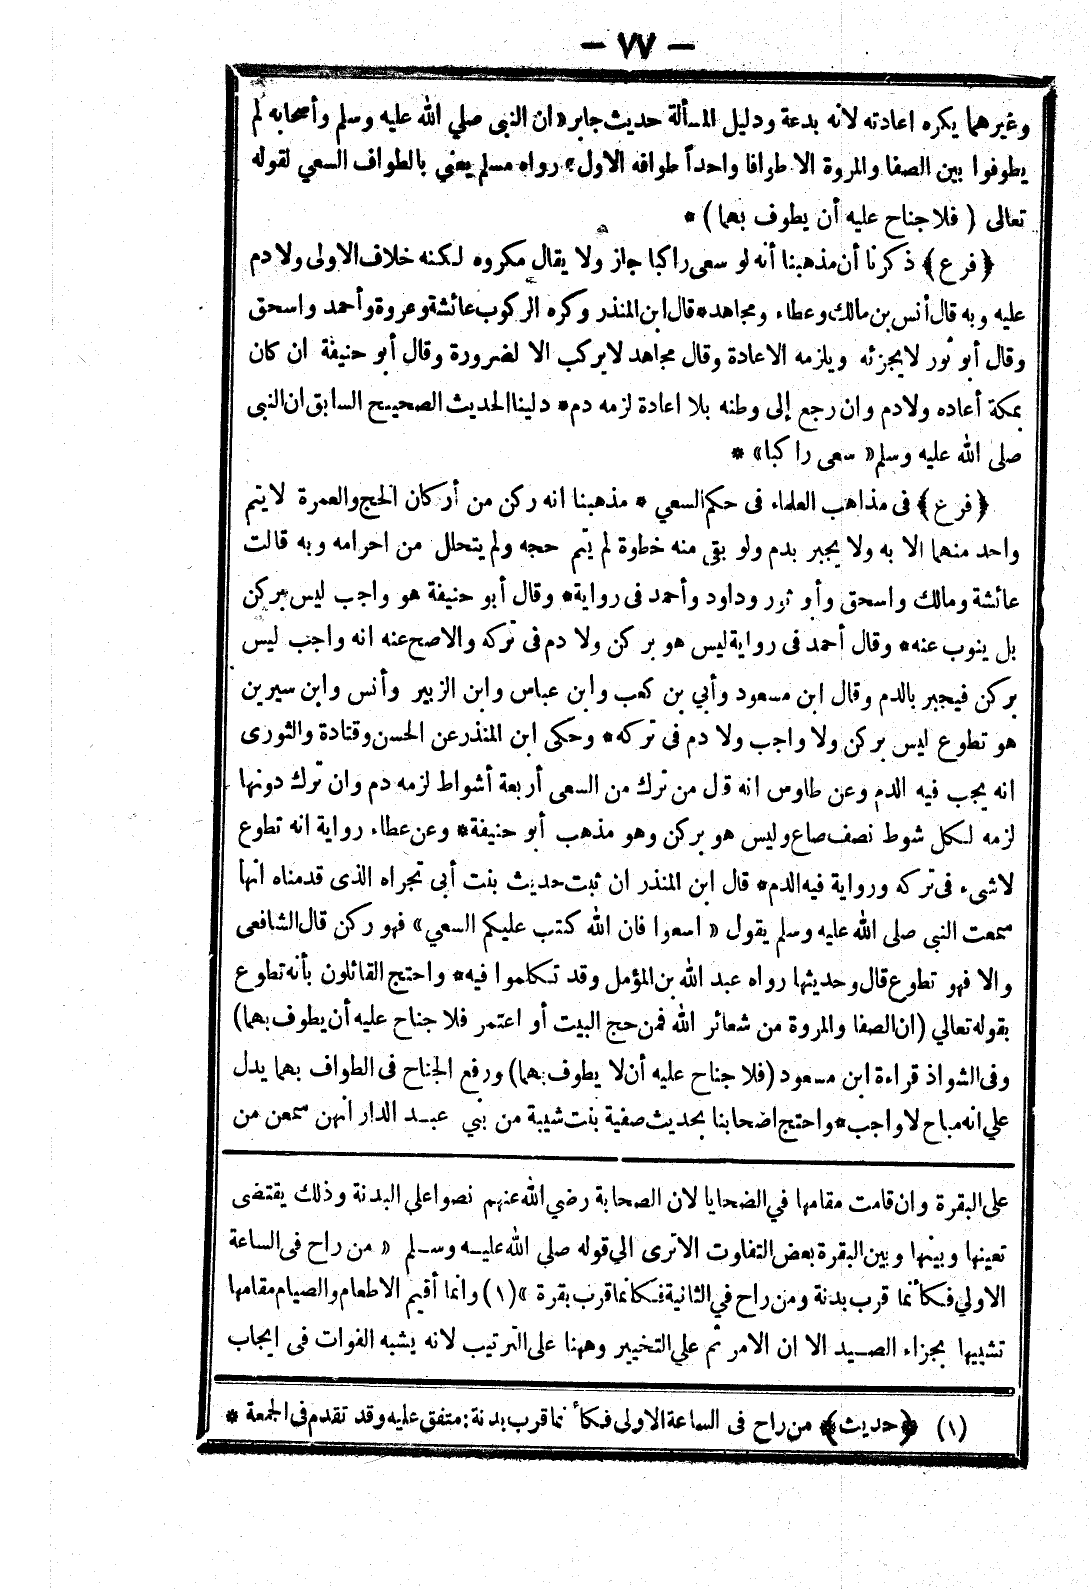 — ٧٧ —
وغيرهما يكره اعادته لانه بدعة ودليل المسألة حديث جابر «ان النبى صلي الله عليه وسلم وأصحابه لم
يطوفوا بين الصفا والمروة الا طوافا واحداً طوافه الاول» رواه مسلم يعني بالطواف السعي لقوله
تعالى ( فلا جناح عليه أن يطوف بهما ) *
﴿ فرع ﴾ ذكرنا أن مذهبنا أنه لو سعى راكبا جاز ولا يقال مكروه لكنه خلاف الاولى ولا دم
عليه وبه قال أنس بن مالك وعطاء ومجاهد* قال ابن المنذر وكره الركوب عائشة وعروة وأحمد واسحق
وقال أبو ثور لا يجزئه ويلزمه الاعادة وقال مجاهد لا يركب الا لضرورة وقال أبو حنيفة ان كان
بمكة أعاده ولا دم وان رجع إلى وطنه بلا اعادة لزمه دم* دليلنا الحديث الصحيح السابق ان النبى
صلى الله عليه وسلم « سعى راكبا» *
﴿ فرع ﴾ فى مذاهب العلماء فى حكم السعي * مذهبنا انه ركن من أركان الحج والعمرة لا يتم
واحد منهما الا به ولا يجبر بدم ولو بقى منه خطوة لم يتم حجه ولم يتحلل من احرامه وبه قالت
عائشة ومالك واسحق وأبو ثور وداود وأحمد فى رواية* وقال أبو حنيفة هو واجب ليس بركن
بل ينوب عنه* وقال أحمد فى رواية ليس هو بركن ولا دم فى تركه والاصح عنه انه واجب ليس
بركن فيجبر بالدم وقال ابن مسعود وأبي بن كعب وابن عباس وابن الزبير وأنس وابن سيرين
هو تطوع ليس بركن ولا واجب ولا دم فى تركه* وحكى ابن المنذر عن الحسن وقتادة والثورى
انه يجب فيه الدم وعن طاوس انه قال من ترك من السعى أربعة أشواط لزمه دم وان ترك دونها
لزمه لكل شوط نصف صاع وليس هو بركن وهو مذهب أبو حنيفة* وعن عطاء رواية انه تطوع
لا شىء فى تركه ورواية فيه الدم* قال ابن المنذر ان ثبت حديث بنت أبي تجراه الذى قدمناه انها
سمعت النبى صلى الله عليه وسلم يقول « اسعوا فان الله كتب عليكم السعي» فهو ركن قال الشافعى
والا فهو تطوع قال وحديثها رواه عبد الله بن المؤمل وقد تكلموا فيه* واحتج القائلون بأنه تطوع
بقوله تعالي (ان الصفا والمروة من شعائر الله فمن حج البيت أو اعتمر فلا جناح عليه أن يطوف بهما)
وفى الشواذ قراءة ابن مسعود (فلا جناح عليه أن لا يطوف بهما) ورفع الجناح فى الطواف بهما يدل
علي انه مباح لا واجب* واحتج اصحابنا بحديث صفية بنت شيبة من بني عبد الدار انهن سمعن من
على البقرة وان قامت مقامها في الضحايا لان الصحابة رضي الله عنهم نصوا علي البدنة وذلك يقتضى
تعينها وبينها وبين البقرة بعض التفاوت الا ترى الي قوله صلي الله عليه وسلم « من راح فى الساعة
الاولي فكأنما قرب بدنة ومن راح في الثانية فكانما قرب بقرة » (١) وانما أقيم الاطعام والصيام مقامها
تشبيها بجزاء الصيد الا ان الامر ثم علي التخيير وههنا على الترتيب لانه يشبه الفوات فى ايجاب
(١) ﴿ حديث ﴾ من راح فى الساعة الاولى فكأنما قرب بدنة: متفق عليه وقد تقدم فى الجمعة *